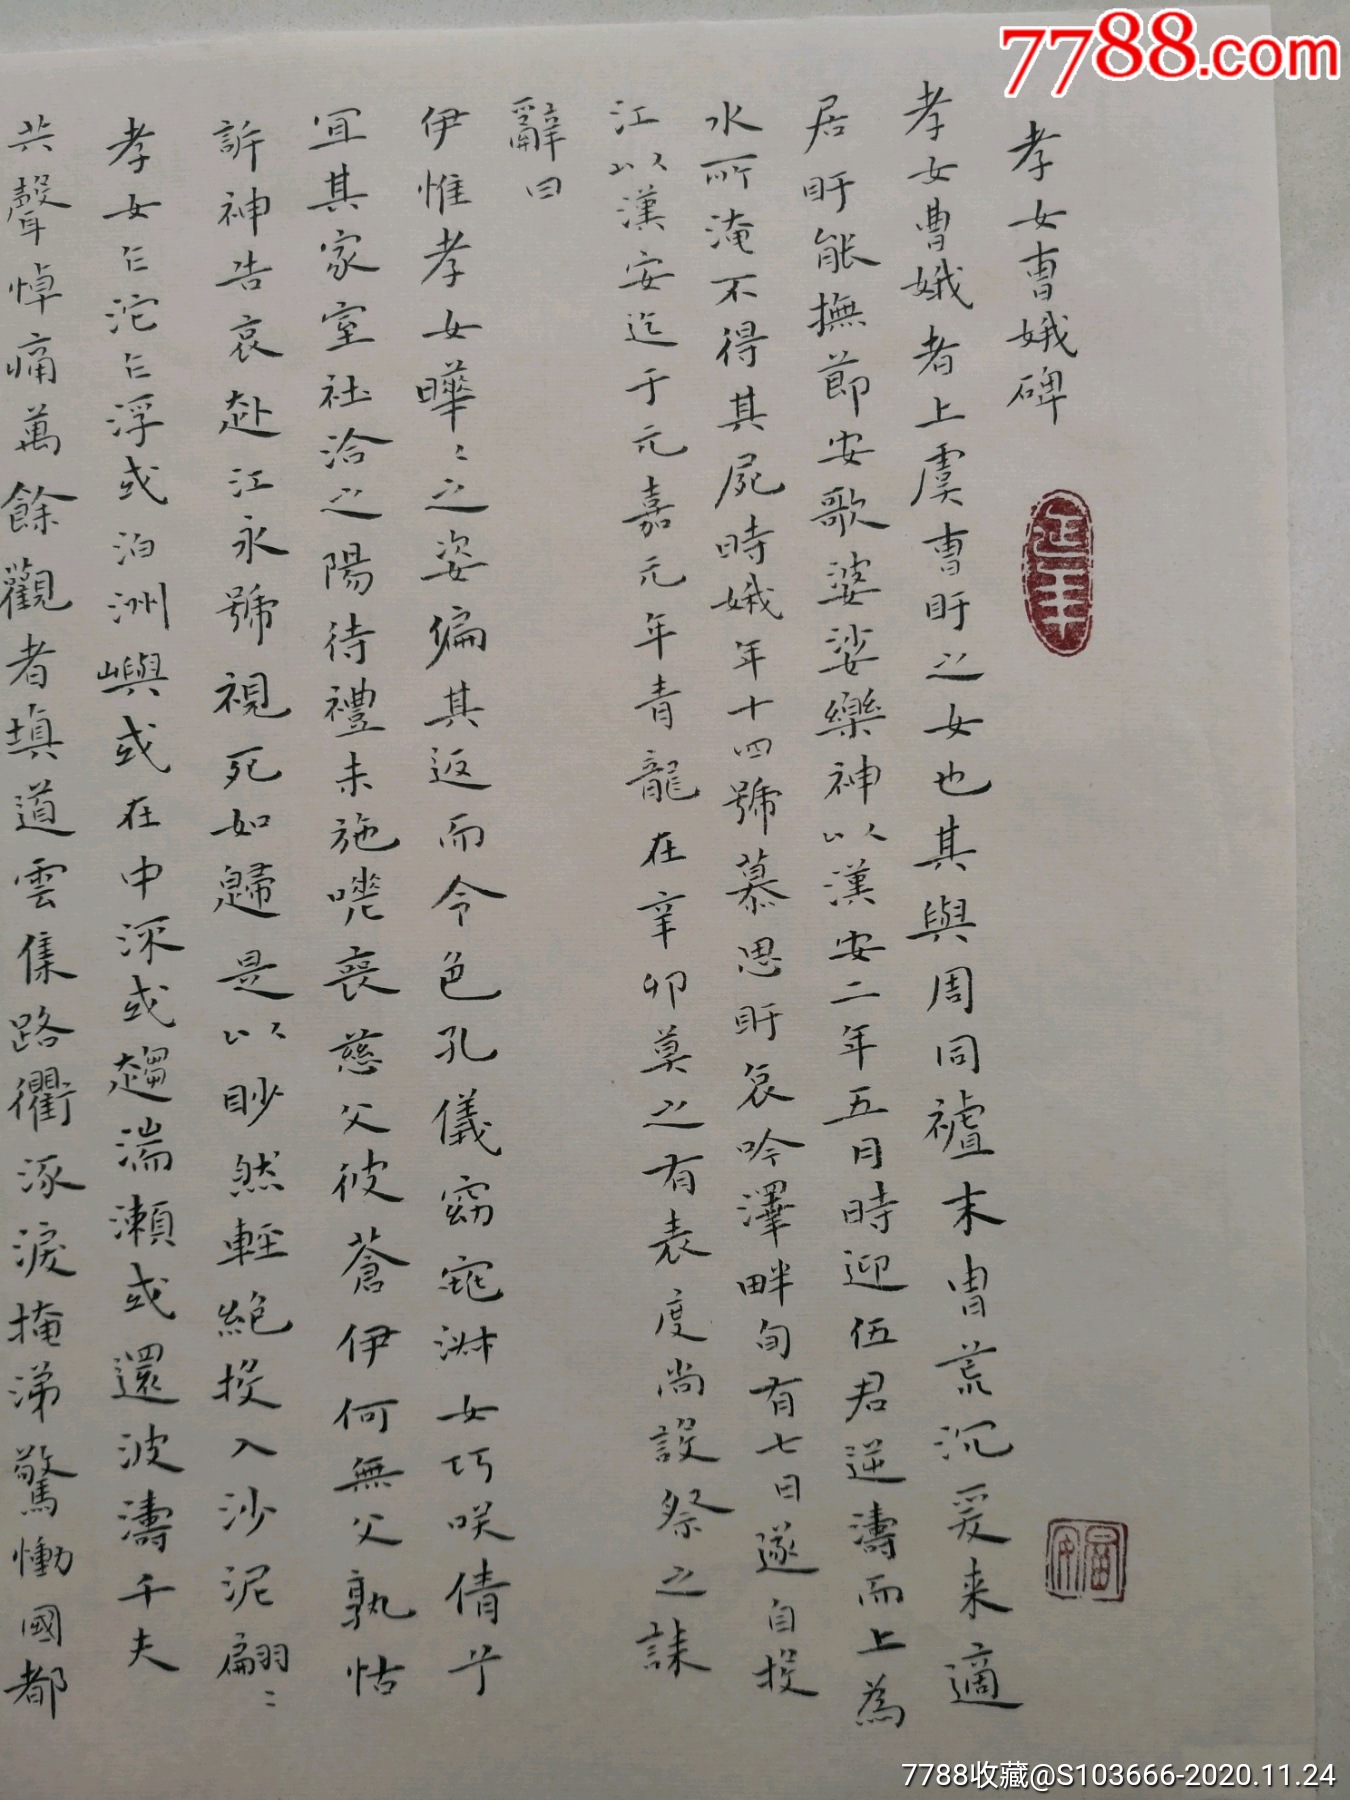 孝女曹娥碑
孝女曹娥者上虞曹盱之女也其與周同禇末胄荒沉爰来適
居盱能撫節安歌婆娑樂神以漢安二年五月時迎伍君逆濤而上為
水所淹不得其屍時娥年十四號慕思盱哀吟澤畔旬有七日遂自投
江以漢安迄于元嘉元年青龍在辛卯莫之有表度尚設祭之誄
辭曰
伊惟孝女曄〻之姿偏其返而令色孔儀窈窕淑女巧咲倩乎
宜其家室社洽之陽待禮未施嗟喪慈父彼蒼伊何無父孰怙
訴神告哀赴江永號視死如歸是以眇然輕絕投入沙泥翩〻
孝女乍沱乍浮或泊洲嶼或在中深或趨湍瀨或還波濤千夫
共聲悼痛萬餘觀者填道雲集路衢涿淚掩涕驚慟國都
7788.com
7788收藏@S103666-2020.11.24